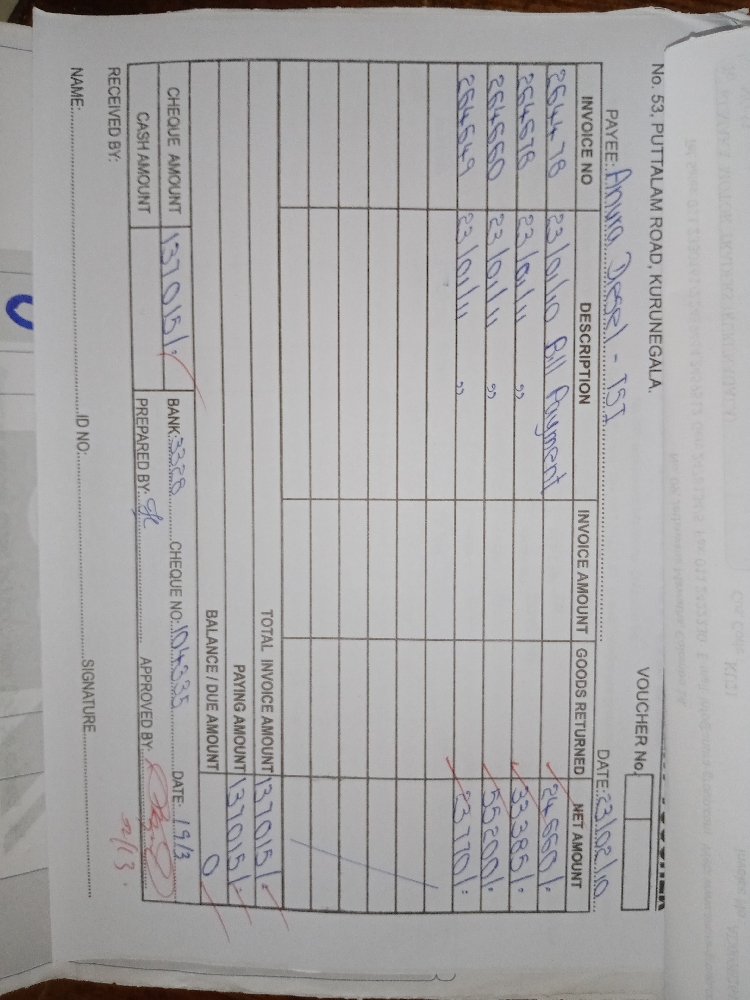 No. 53, PUTTALAM ROAD, KURUNEGALA.
VOUCHER No.
PAYEE: Anura Desel -
DATE: 23/02/10
INVOICE NO DESCRIPTION INVOICE AMOUNT GOODS RETURNED NET AMOUNT
264478 23/01/10 Bill Payment 24660/.
264678 23/01/11 " 33385/.
264660 23/01/11 " 55200/.
264649 23/01/11 " 23770/.
TOTAL INVOICE AMOUNT 137015/.
PAYING AMOUNT 137015/.
BALANCE / DUE AMOUNT 0
CHEQUE AMOUNT 137015/. BANK: CHEQUE NO: 104335 DATE: 19/3
CASH AMOUNT PREPARED BY: APPROVED BY:
RECEIVED BY:
NAME: ID NO: SIGNATURE